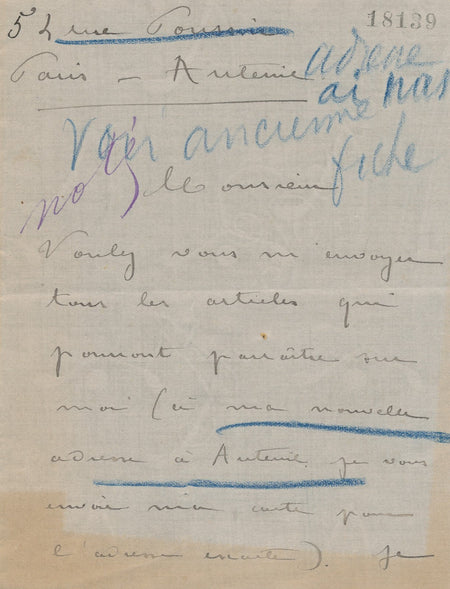 18139
5 4 rue Poussin
Paris – Auteuil
adresse
ai pas
Voir ancienne
fiche
noté
Monsieur
Voulez vous m'envoyer
tous les articles qui
pourront paraître sur
moi (à ma nouvelle
adresse à Auteuil. Je vous
envoie ma carte pour
l'adresse exacte). Je